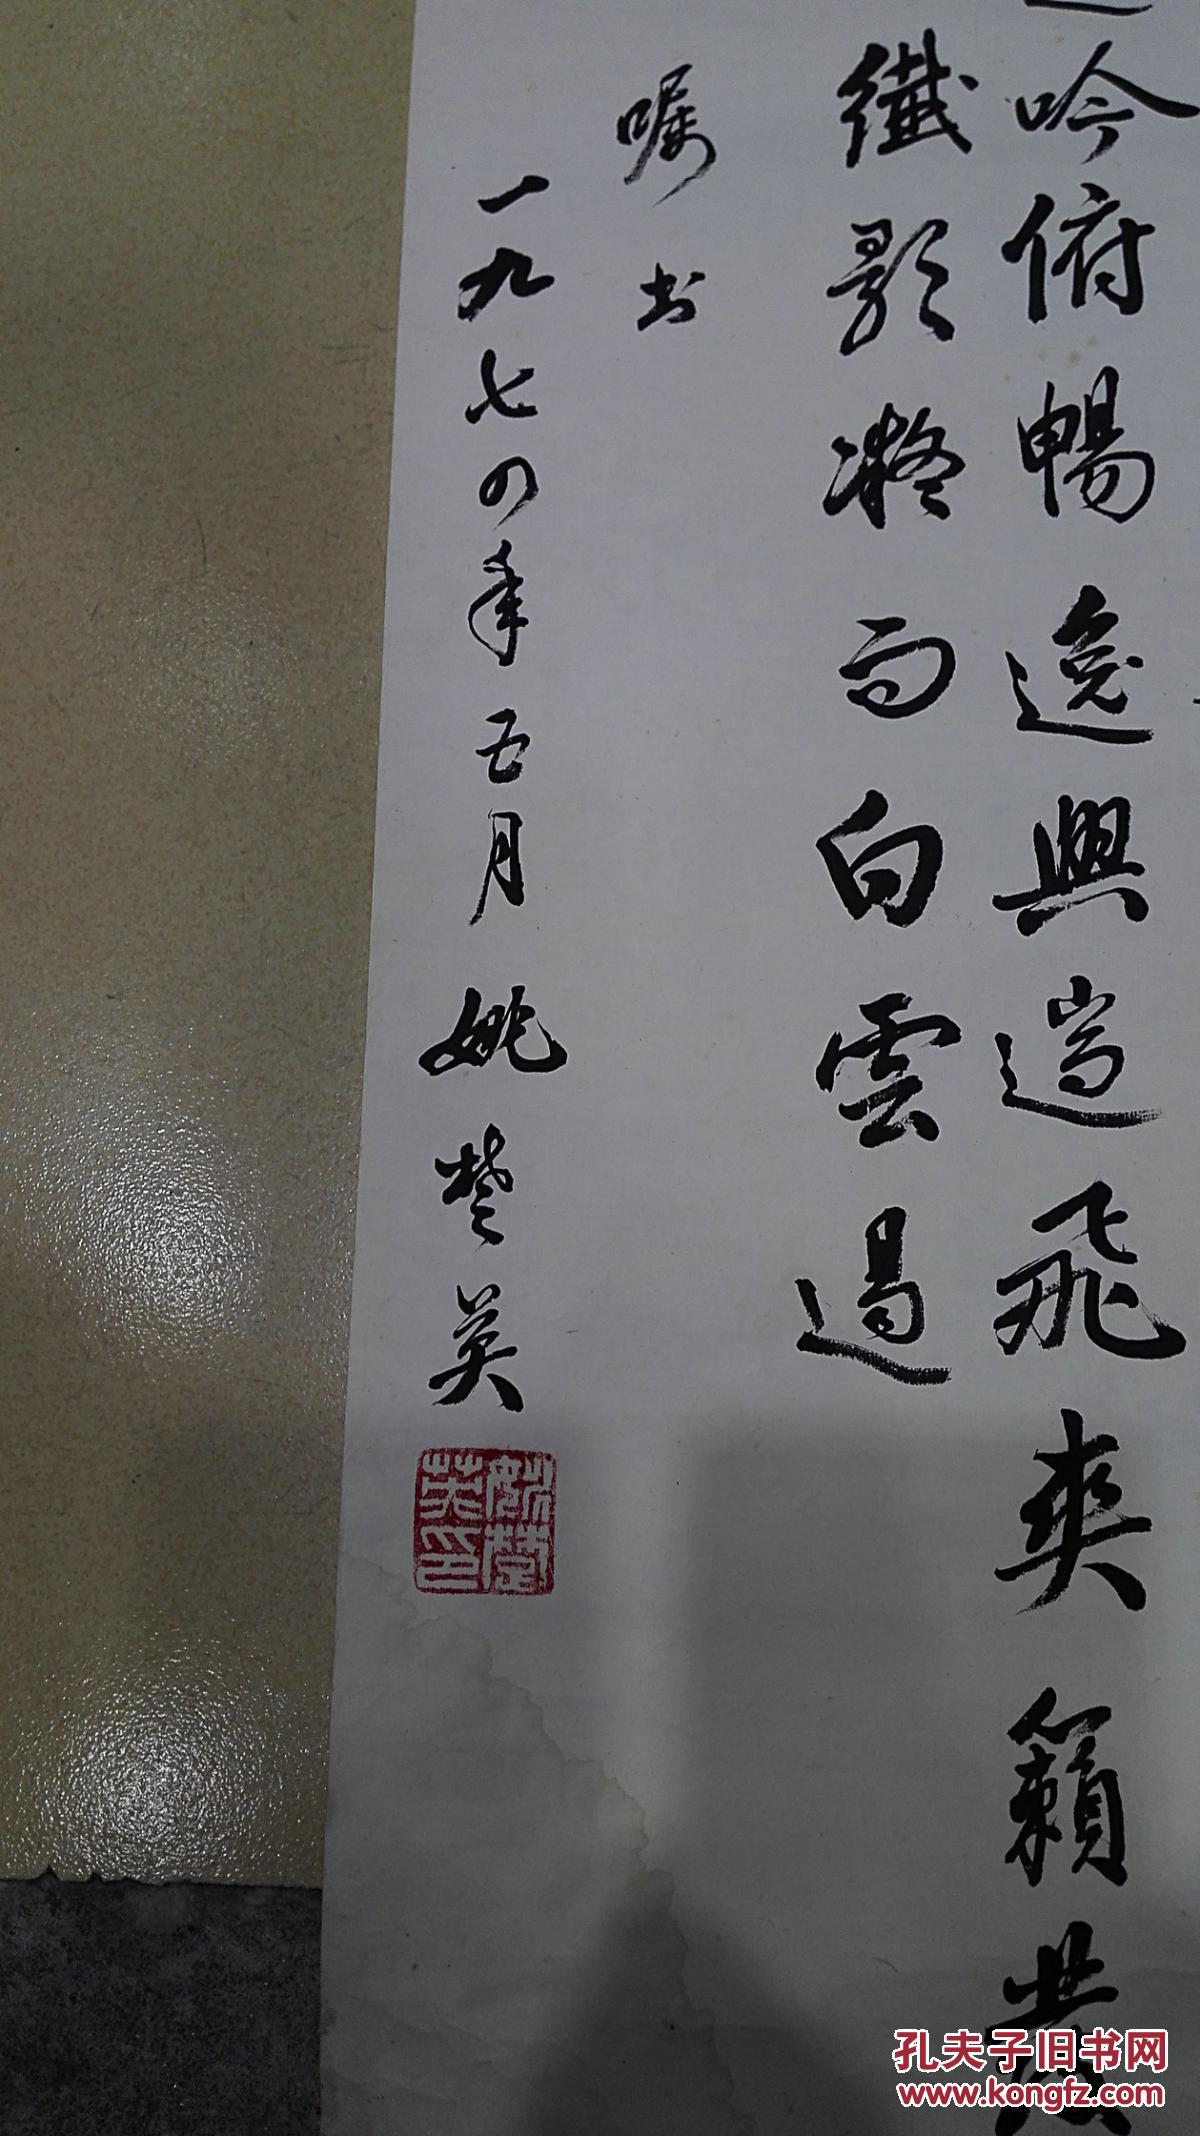 吟俯暢逸興遄飛爽籟發
纖歌凝而白雲遏
嘱书
一九七四年五月姚楚英
姚楚英印
孔夫子旧书网
www.kongfz.com